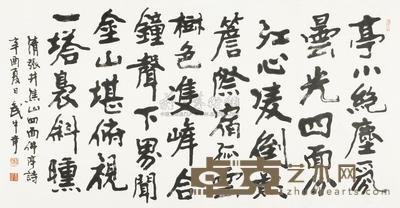 亭小絶塵氛
曇光四面
江心凌倒景
簷際宿孤雲
樹色隻峰合
鐘聲下界聞
金山堪俯視
一塔裊斜曛
清張井焦山四面佛亭詩
辛酉夏日武中奇
艺术网